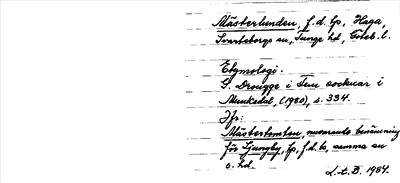 Mästerlunden, f.d. lp, Haga,
Svarteborgs sn, Tunge hd, Göteb. l.
Etymologi.
G. Drougge i Fem socknar i
Munkedal, (1980), s. 334.
Jfr:
Mästertomten, nuvarande benämning
för Ljungby, lp, f.d. b, samma sn
o. hd.
L.t.D. 1984.